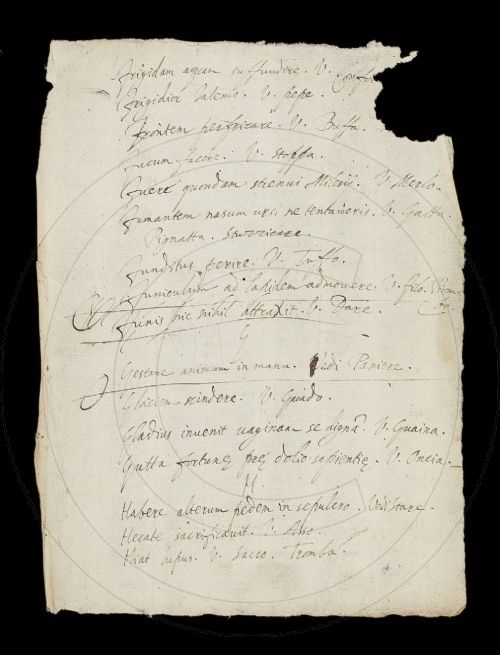 Frigidam aquam suffundere. V.
Frigidior Salemo. V. pepe.
Frontem perfricare. V. Buffa.
Fucum facere. V. Stoppa.
Fuere quondam strenui Milesij. V. Merlo.
Fumantem nasum ursi ne tentaueris. V. Gatta.
Pignatta. Stuzzicare.
Funditus perire. V. Tuffo.
Funiculum ad lapidem admovere. V. filo. Piom
bo.
Funis hic nihil attraxit. V. Dare.
G
Gestare animam in manu. Vedi Paniere.
Glaciem scindere. V. Guado.
Gladius invenit vaginam se dignā. V. Guaina.
Gutta fortunę pręs dolio sapientię. V. Oncia.
H
Habere alterum pedem in sepulcro. Vedi stare.
Hecate sacrificavit. V.
Hiat lupus. V. Sacco. Tromba.